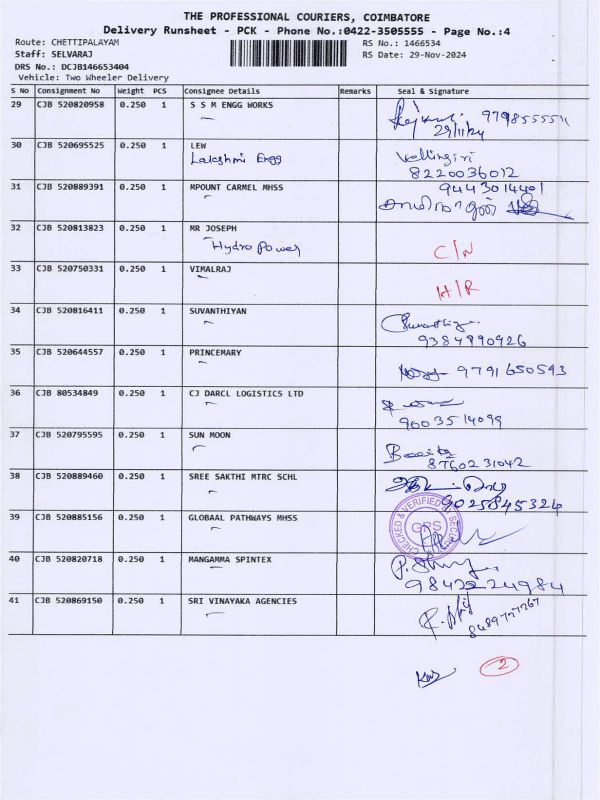 THE PROFESSIONAL COURIERS, COIMBATORE
Delivery Runsheet - PCK - Phone No.:0422-3505555 - Page No.:4
Route: CHETTIPALAYAM
Staff: SELVARAJ
DRS No.: DCJB146653404
Vehicle: Two Wheeler Delivery
RS No.: 1466534
RS Date: 29-Nov-2024
S No Consignment No Weight PCS Consignee Details Remarks Seal & Signature
29 CJB 520820958 0.250 1 S S M ENGG WORKS
29/11/24
30 CJB 520695525 0.250 1 LEW Vellingiri
Lakshmi Engg 8220036012
31 CJB 520889391 0.250 1 MPOUNT CARMEL MHSS 9443014401
32 CJB 520813823 0.250 1 MR JOSEPH
Hydro Power C/N
33 CJB 520750331 0.250 1 VIMALRAJ
H/R
34 CJB 520816411 0.250 1 SUVANTHIYAN
9384990926
35 CJB 520644557 0.250 1 PRINCEMARY
9791650593
36 CJB 80534849 0.250 1 CJ DARCL LOGISTICS LTD
9603514099
37 CJB 520795595 0.250 1 SUN MOON
8760231042
38 CJB 520889460 0.250 1 SREE SAKTHI MTRC SCHL
9025845324
39 CJB 520885156 0.250 1 GLOBAAL PATHWAYS MHSS
CHECKED & VERIFIED
GRS
40 CJB 520820718 0.250 1 MANGAMMA SPINTEX
9842224984
41 CJB 520869150 0.250 1 SRI VINAYAKA AGENCIES
8489727267
2